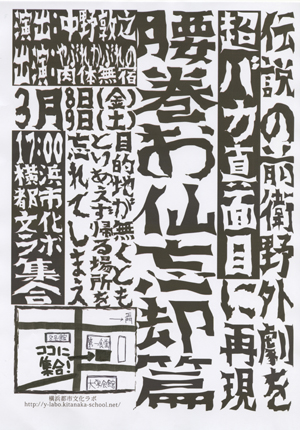 伝説の前衛野外劇を
超バカ真面目に再現
腰巻お仙忘却篇
演出:中野敦之
出演:やぶれかぶれの肉体無宿
3月8日(金)
9日(土)
17:00
横浜都市文化ラボ集合
目的地が無くとも
とりあえず帰る場所を
忘れてしまえ
ココに
集合!
横浜都市文化ラボ
http://y-labo.kitanaka-school.net/